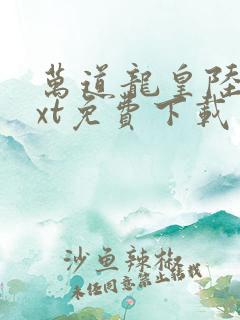 萬道龍皇陸
xt免費下載
沙魚辣椒
未经同意禁止转载